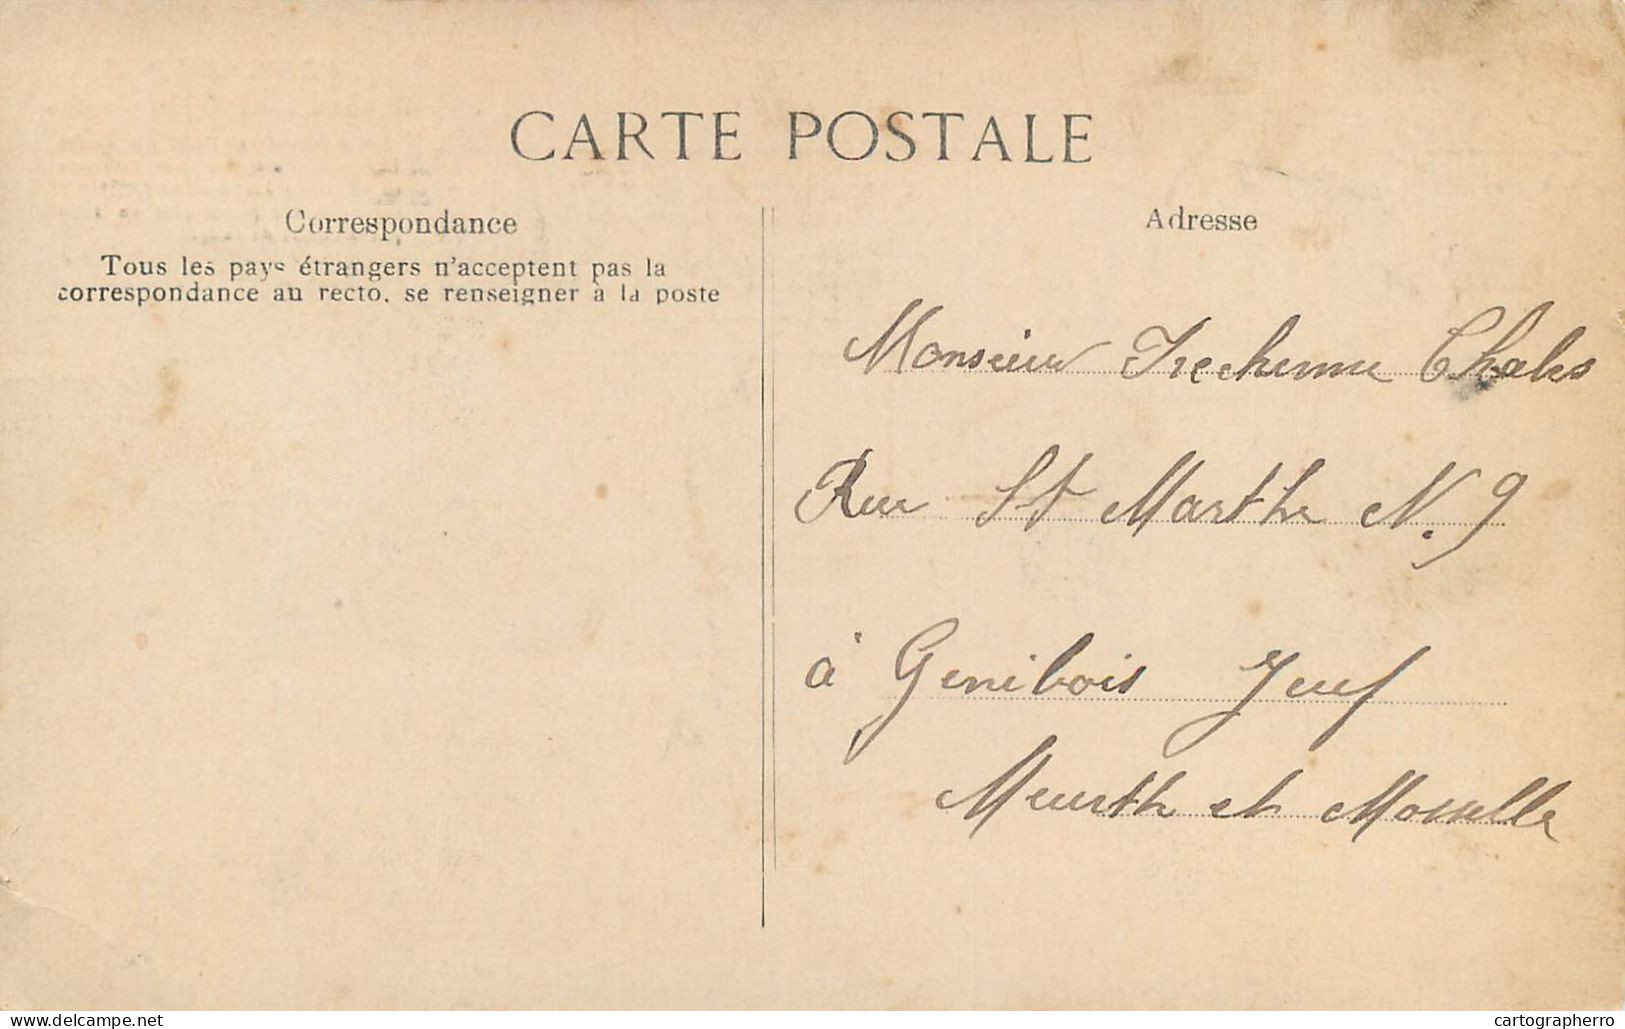 CARTE POSTALE
Correspondance
Tous les pays étrangers n'acceptent pas la
correspondance au recto, se renseigner à la poste
Adresse
Monsieur Chales
Rue St Marthe N. 9
à Genibois Jeuf
Meurthe et Moselle
www.delcampe.net
cartographerro